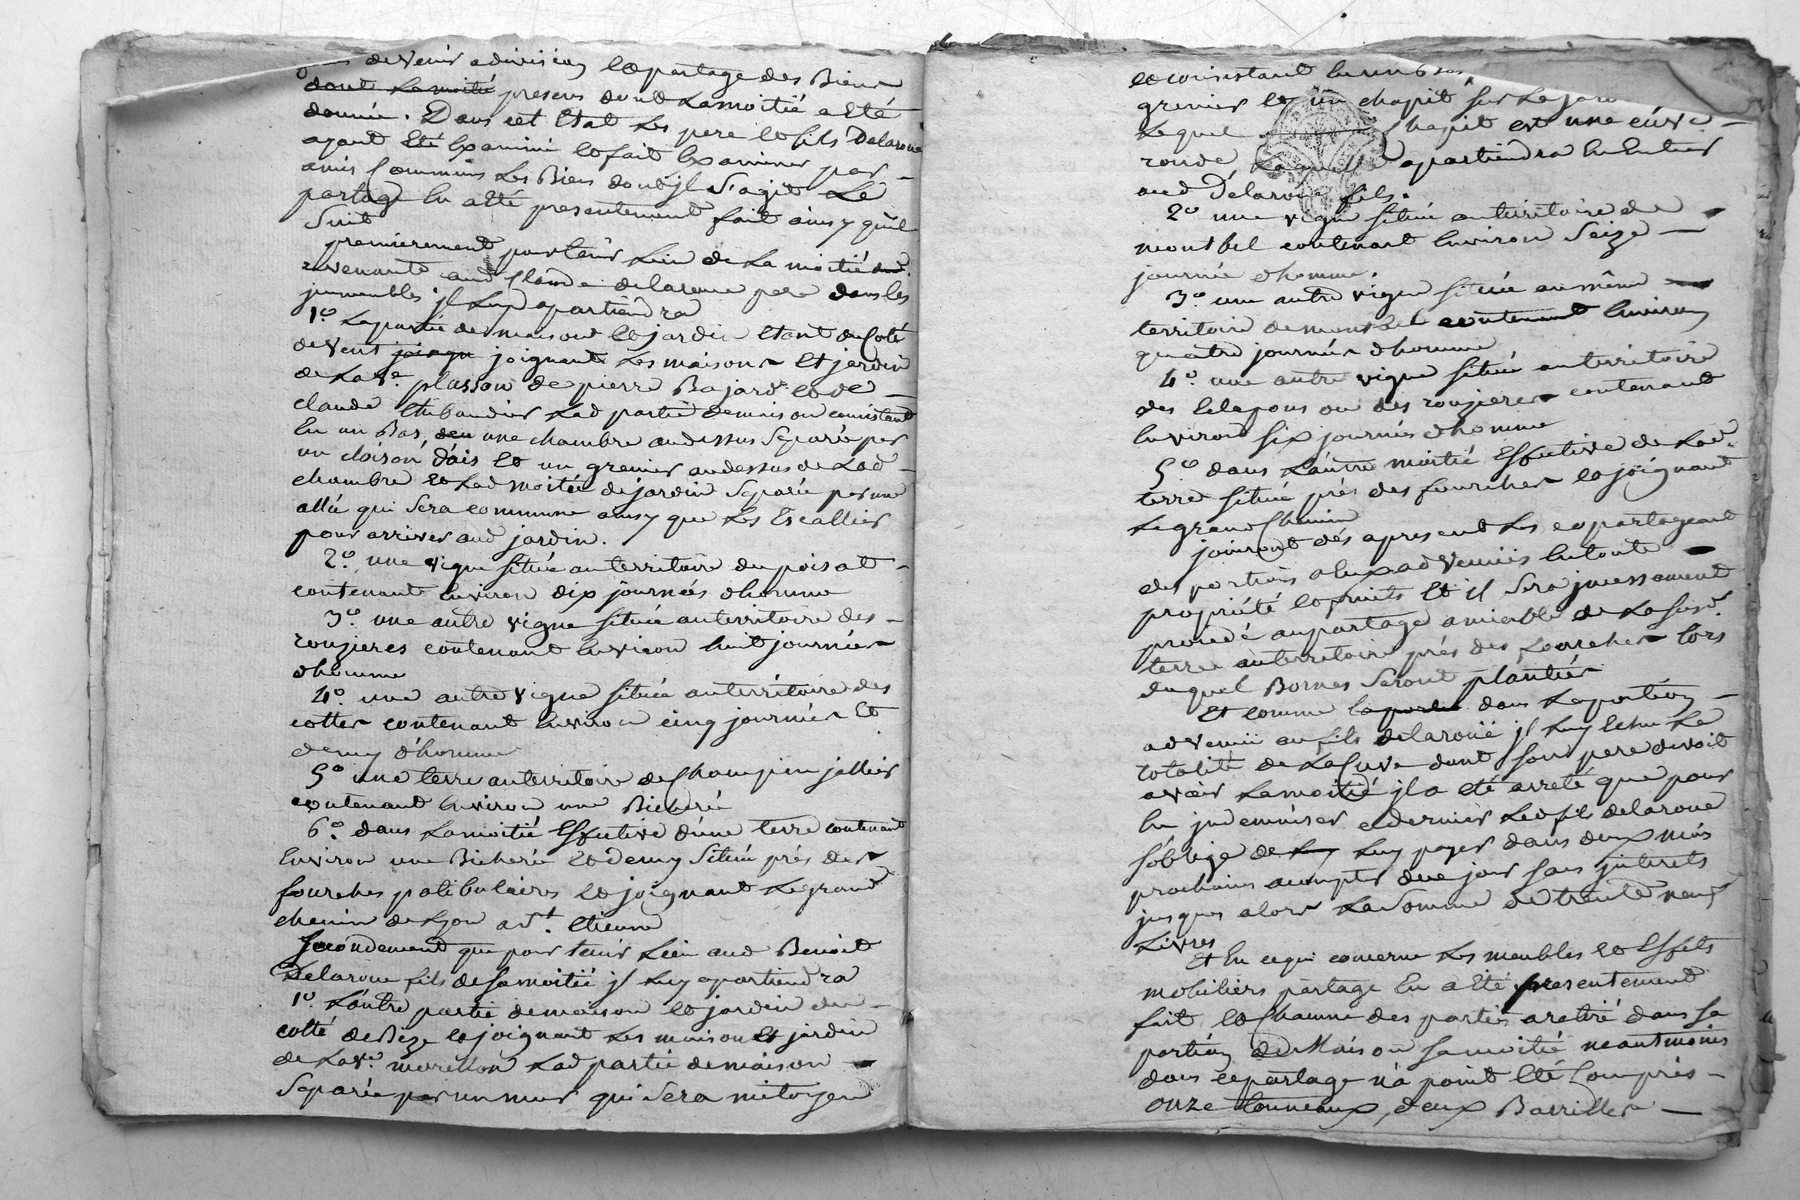 de venir a division et partage des Biens
dont la moitié presens dont La moitié a eté
donnée. Dans cet Etat Les pere et fils Delaroue
ayant eté Examiné et fait Examiner par
amis Communs Les Biens dont jl S'agit Le
partage En a eté presentement fait ainsy qu'il
Suit
premierement pour tenir Lieu de La moitié
revenante aud Claude delaroue pere dans les
jmmeubles jl Luy apartiendra
1º. La partie de maison et jardin Etant du Coté
de vent joignant Les maisons Et jardin
de La ve. plasson de pierre Bajard et de
claude Thibaudier Lad partie de maison consistant
En un Bas, une chambre au dessus Separée par
un cloison d'ais et un grenier au dessus de Lad
chambre et Lad moitié de jardin Separée par une
allée qui Sera commune ainsy que Les Escalliers
pour arriver aud jardin.
2º. une vigne Située au territoire du poisat
contenant Environ dix journées d'homme
3º. une autre vigne Située au territoire des
rouzieres contenant Environ huit journées
d'homme
4º. une autre vigne Située au territoire des
cottes contenant Environ cinq journées Et
demy d'homme
5º une terre au territoire de Champin jallier
contenant Environ une Bicherée
6º. dans La moitié Effective d'une terre contenant
Environ une Bicherée et demy Située prés des
fourches patibulaires et joignant Le grand
chemin de Lyon a St. Etienne
Secondement que pour tenir Lieu aud Benoit
Delaroue fils de Sa moitié jl Luy apartiendra
1º. L'autre partie de maison et jardin du
cotté de Bize et joignant Les maison Et jardin
de La ve. morellon Lad partie de maison
Separée par un mur qui Sera mitoyen
et consistant En un bas,
grenier et un chapit Sur Le jardin
Lequel chapit est une cuve
ronde Laquelle apartiendra En Entier
aud Delaroue fils.
2º une vigne Située au territoire de
montbel contenant Environ Seize
journée d'homme.
3º une autre vigne Située au même
territoire de montbel contenant Environ
quatre journées d'homme
4º. une autre vigne Située au territoire
des ou des rouzieres contenant
Environ Six journées d'homme
5º dans L'autre moitié Effective de Lad.
terre Située prés des fourches et joignant
Le grand Chemin
joüiront dés apresent Les copartageant
des portions a Eux advenues En toute
propriété et fruits Et il Sera jncessament
procedé au partage amiable de La Susd.
terre au territoire prés des fourches lors
duquel Bornes Seront plantées
Et comme dans La portion
advenüe au fils delaroüe jl Luy Echu La
totalité de La Cuve dont Son pere devoit
avoir La moitié jl a eté arreté que pour
En jndemniser ce dernier Led fils delaroue
S'oblige de Luy payer dans deux mois
prochains a compter de ce jour Sans jnterets
jusques alors La Somme de trente neuf
Livres
Et En ce qui concerne Les meubles et Effets
mobiliers partage En a eté presentement
fait et Chaqune des parties a retiré dans Sa
portion de Maison Sa moitié neantmoins
dans ce partage n'a point Eté Compris
onze tonneaux, deux Barrilles